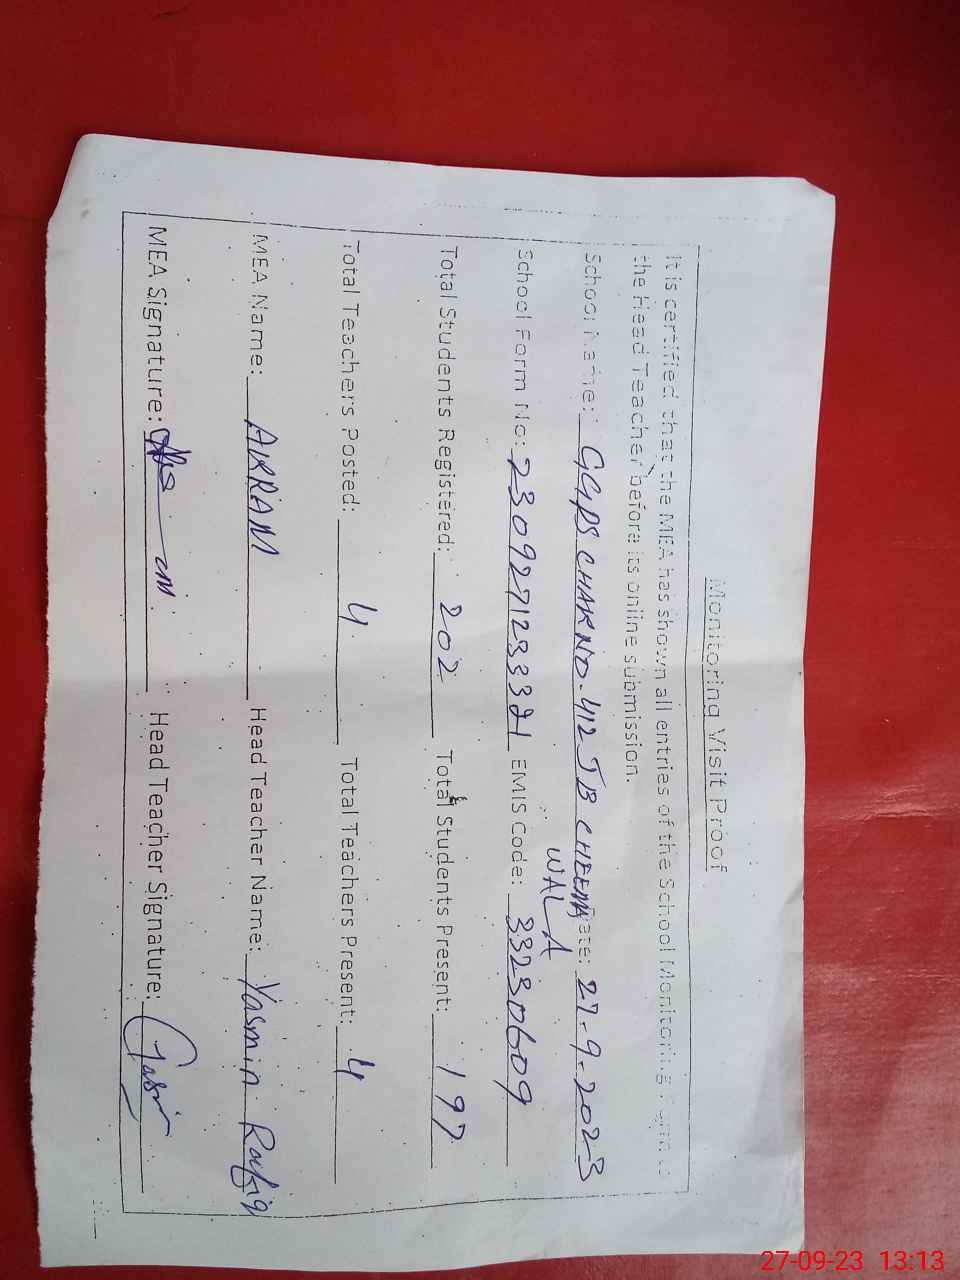 Monitoring Visit Proof
It is certified that the MEA has shown all entries of the School Monitoring Form to
the Head Teacher before its online submission.
School Name: GGPS CHAK NO. 412 JB CHEEMA WALA Date: 27-9-2023
School Form No: 2309271233321 EMIS Code: 33230609
Total Students Registered: 202 Total Students Present: 197
Total Teachers Posted: 4 Total Teachers Present: 4
MEA Name: AKRAM Head Teacher Name: Yasmin Rafiq
MEA Signature: Head Teacher Signature:
27-09-23 13:13